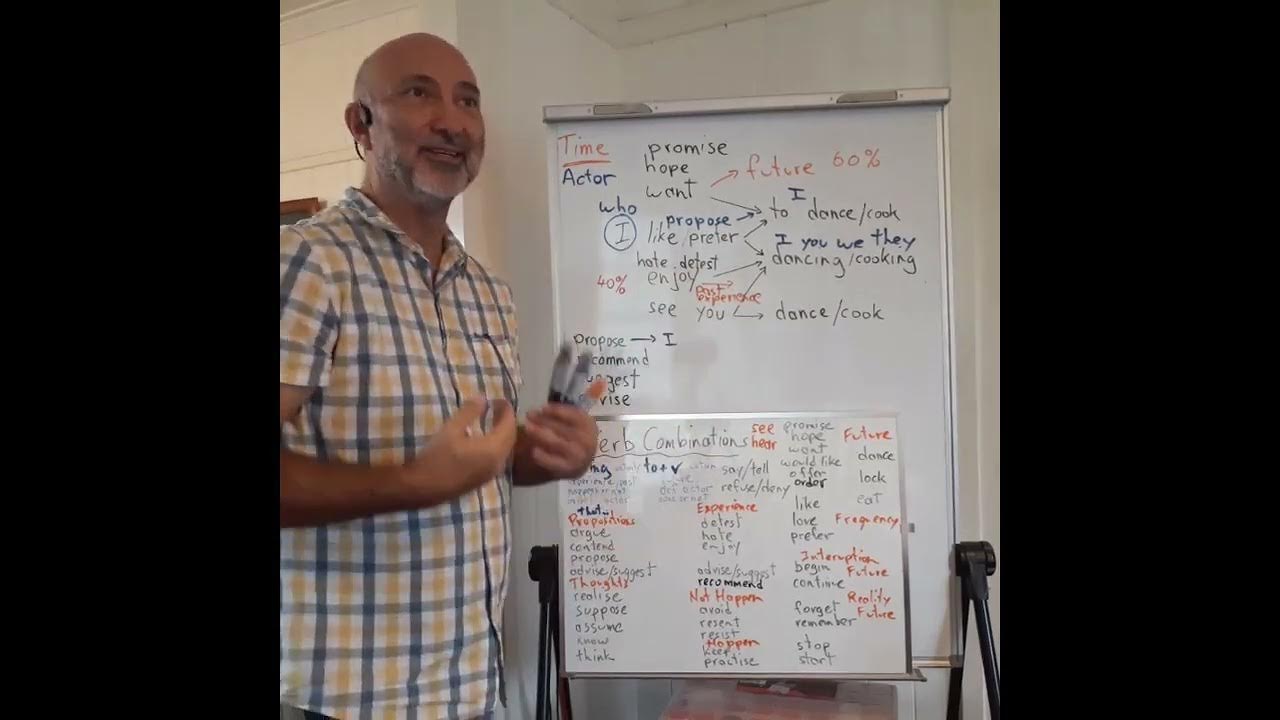 Time promise
hope
future 60%
Actor want
I
who propose to dance/cook
I like/prefer
I you we they
hate detest dancing/cooking
40% enjoy
past
experience
see you dance/cook
propose → I
recommend
Verb Combinations
see promise
hear hope Future
want dance
to+v say/tell would like
offer lock
refuse/deny order
like eat
that..
Propositions Experience
argue detest love Frequency
contend hate prefer
propose enjoy
Interuption
advise/suggest advise/suggest begin Future
Thoughts recommend continue
realise Not Happen Reality
suppose avoid forget Future
assume resent remember
know resist
Happen stop
think keep start
practise